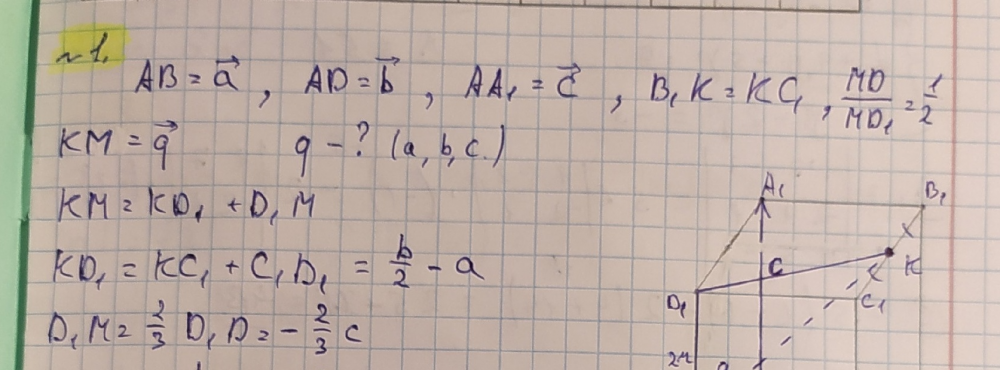 ~1.
AB = a⃗ , AD = b⃗ , AA₁ = c⃗ , B₁K = KC₁ , MD/MD₁ = 1/2
KM = q⃗ q - ? (a, b, c)
KM = KD₁ + D₁M
KD₁ = KC₁ + C₁D₁ = b/2 - a
D₁M = 2/3 D₁D = - 2/3 c
A₁
B₁
C
K
D₁
C₁